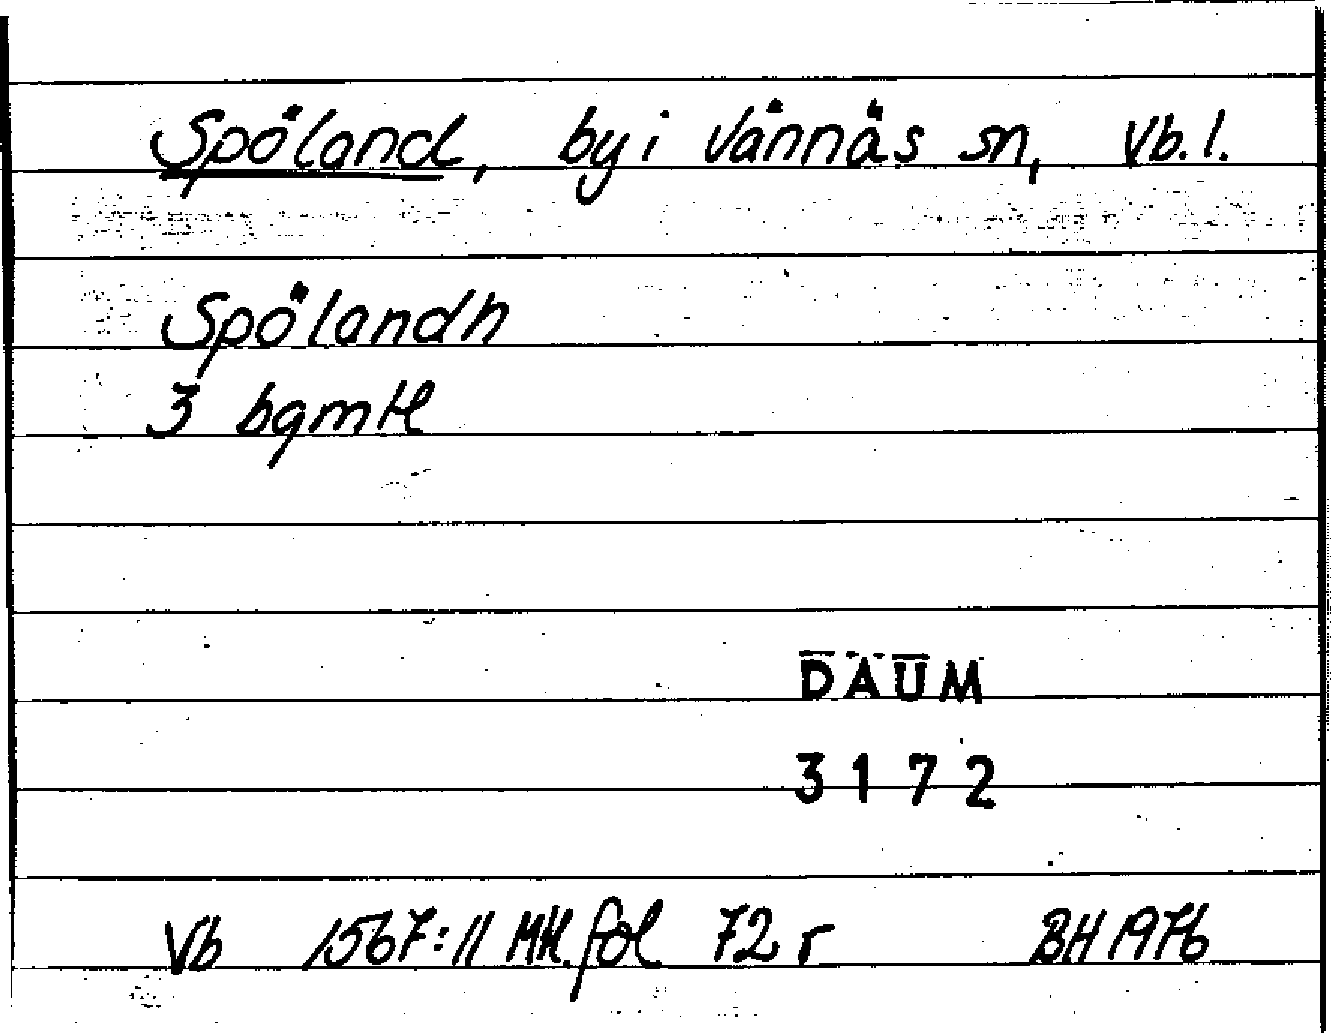 Spöland, by i Vännäs sn, Vb. l.
Spölandh
3 bqmtl
DAUM
3172
Vb 1567:11 Mtl. fol 72 r BH 1976